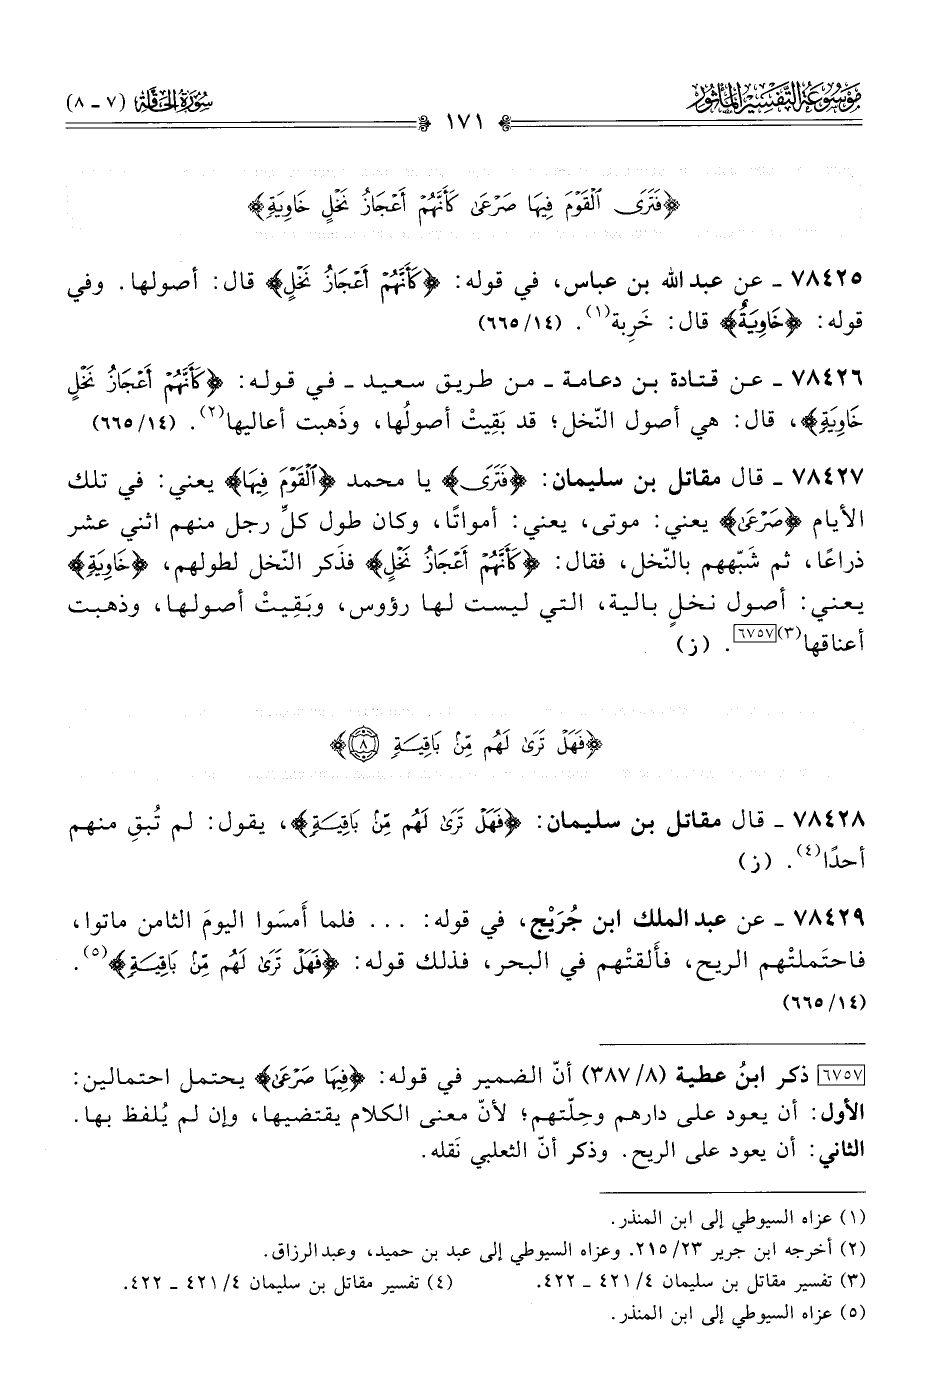 موسوعة التفسير المأثور
سورة الحاقة (٧ - ٨)
١٧١
﴿فَتَرَى ٱلْقَوْمَ فِيهَا صَرْعَىٰ كَأَنَّهُمْ أَعْجَازُ نَخْلٍ خَاوِيَةٍ﴾
٧٨٤٢٥ ـ عن عبد الله بن عباس، في قوله: ﴿كَأَنَّهُمْ أَعْجَازُ نَخْلٍ﴾ قال: أصولها. وفي
قوله: ﴿خَاوِيَةٌ﴾ قال: خَرِبة(١). (١٤/٦٦٥)
٧٨٤٢٦ ـ عن قتادة بن دعامة ـ من طريق سعيد ـ في قوله: ﴿كَأَنَّهُمْ أَعْجَازُ نَخْلٍ
خَاوِيَةٍ﴾، قال: هي أصول النّخل؛ قد بَقِيتْ أصولُها، وذَهبت أعاليها(٢). (١٤/٦٦٥)
٧٨٤٢٧ ـ قال مقاتل بن سليمان: ﴿فَتَرَى﴾ يا محمد ﴿ٱلْقَوْمَ فِيهَا﴾ يعني: في تلك
الأيام ﴿صَرْعَىٰ﴾ يعني: موتى، يعني: أمواتًا، وكان طول كلِّ رجل منهم اثني عشر
ذراعًا، ثم شَبّههم بالنّخل، فقال: ﴿كَأَنَّهُمْ أَعْجَازُ نَخْلٍ﴾ فذَكر النّخل لطولهم، ﴿خَاوِيَةٍ﴾
يعني: أصول نخلٍ بالية، التي ليست لها رؤوس، وبَقِيتْ أصولها، وذهبت
أعناقها(٣)[٦٧٥٧]. (ز)
﴿فَهَلْ تَرَىٰ لَهُم مِّنۢ بَاقِيَةٍ ٨﴾
٧٨٤٢٨ ـ قال مقاتل بن سليمان: ﴿فَهَلْ تَرَىٰ لَهُم مِّنۢ بَاقِيَةٍ﴾، يقول: لم تُبقِ منهم
أحدًا(٤). (ز)
٧٨٤٢٩ ـ عن عبد الملك ابن جُرَيْج، في قوله: ... فلما أَمسَوا اليومَ الثامن ماتوا،
فاحتَملتْهم الريح، فأَلقتْهم في البحر، فذلك قوله: ﴿فَهَلْ تَرَىٰ لَهُم مِّنۢ بَاقِيَةٍ﴾(٥).
(١٤/٦٦٥)
[٦٧٥٧] ذكر ابنُ عطية (٨/٣٨٧) أنّ الضمير في قوله: ﴿فِيهَا صَرْعَىٰ﴾ يحتمل احتمالين:
الأول: أن يعود على دارهم وحِلّتهم؛ لأنّ معنى الكلام يقتضيها، وإن لم يُلفظ بها.
الثاني: أن يعود على الريح. وذكر أنّ الثعلبي نَقله.
(١) عزاه السيوطي إلى ابن المنذر.
(٢) أخرجه ابن جرير ٢٣/٢١٥. وعزاه السيوطي إلى عبد بن حميد، وعبد الرزاق.
(٣) تفسير مقاتل بن سليمان ٤/٤٢١ ـ ٤٢٢.
(٤) تفسير مقاتل بن سليمان ٤/٤٢١ ـ ٤٢٢.
(٥) عزاه السيوطي إلى ابن المنذر.